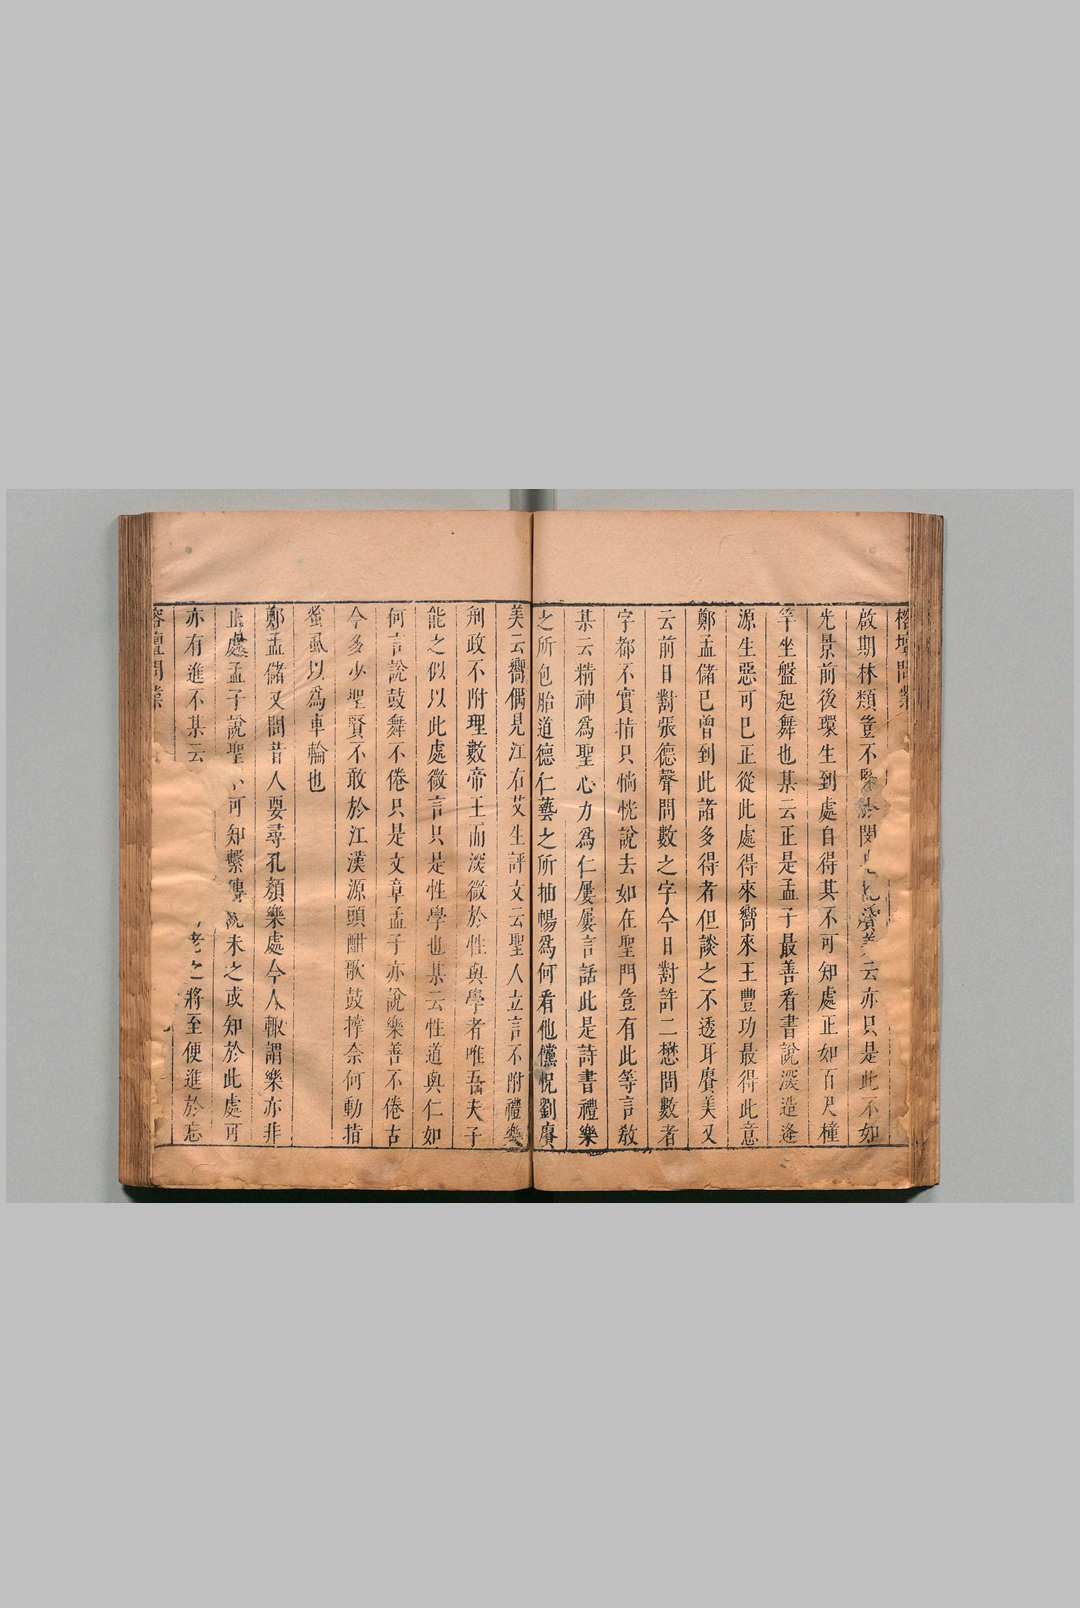 榕壇問業
啟期林類豈不賢於閔云亦只是此不如
光景前後環生到處自得其不可知處正如百尺橦
竿坐盤起舞也某云正是孟子最善看書說深造逢
源生惡可已正從此處得來嚮來王豐功最得此意
鄭孟儲已曾到此諸多得者但談之不透耳賡美又
云前日對張德聲問數之字今日對許二懋問數者
字都不實指只惝恍說去如在聖門豈有此等言教
某云精神為聖心力為仁屢屢言話此是詩書禮樂
之所包胎道德仁藝之所抽暢為何看他儻怳劉賡
美云嚮偶見江右艾生評文云聖人立言不附禮樂
刑政不附理數帝王而深微於性與學者唯吾夫子
能之似以此處微言只是性學也某云性道與仁如
何言說鼓舞不倦只是文章孟子亦說樂善不倦古
今多少聖賢不敢於江漢源頭酣歌鼓撁奈何動指
蜜虱以為車輪也
鄭孟儲又問昔人要尋孔顏樂處今人輙謂樂亦非
止處孟子說聖不可知繫傳說未之或知於此處可
亦有進不某云老之將至便進於忘
榕壇問業